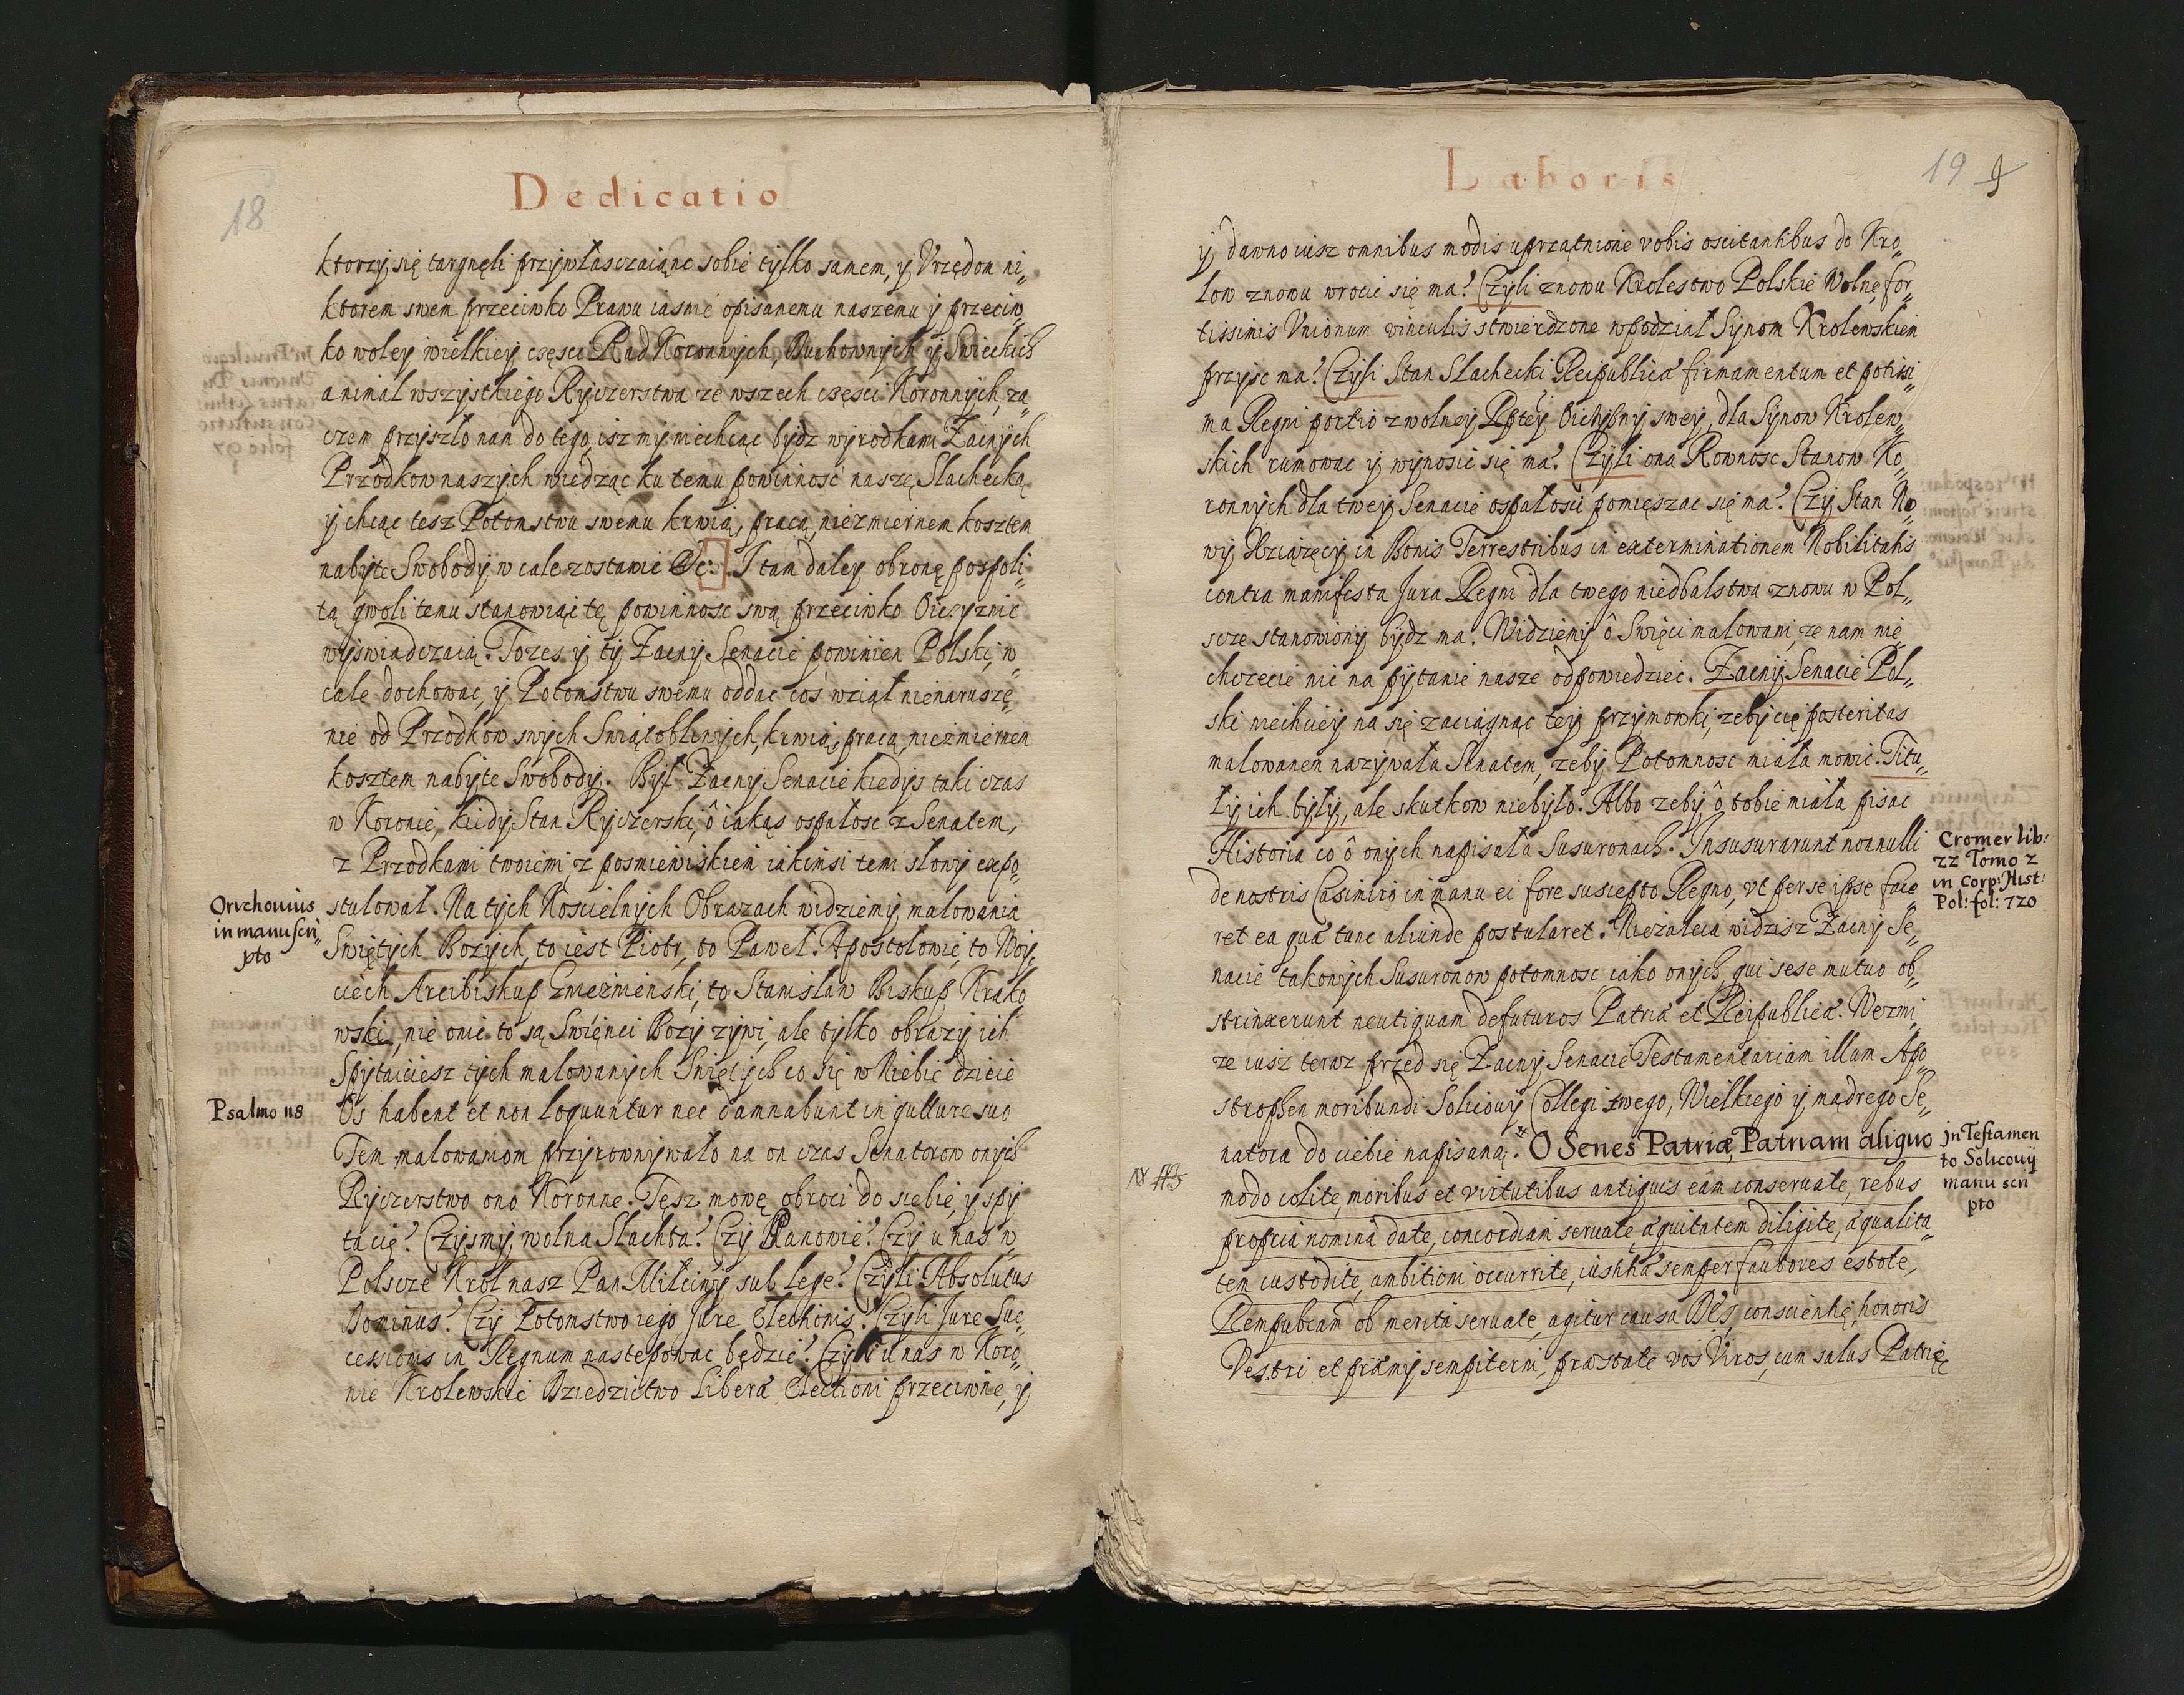 18
Dedicatio
ktorzy się targnęli przywłasczaiąnc sobie tylko samem, y Vrzędom ni„
ktorem swem przeciwko Prawu iasnie opisanemu naszemu y przeciw„
ko woley wielkiey częsci Rad Koronnych, Duchownych y Swieckich
a nimal wszystkiego Rycerstwa ze wszech częsci Koronnych, za„
czem przyszło nam do tego, isz my niechcąc bydz wyrodkami Zacnych
Przodkow naszych wiedząc ku temu powinność naszę Slachecką
y chcąc tesz Potomstwu swemu krwią, pracą, niezmiernem kosztem
nabyte Swobody w cale zostawic &c: I tam daley obronę pospoli„
tą gwoli temu stanowiąc tę powinnosc swą przeciwko Oiczyznie
wyswiadczaią. Tozes y ty Zacny Senacie powinien Polski, w
cale dochowac, y Potomstwu swemu oddac coś wziął nienaruszę„
nie od Przodkow swych Swiątobliwych, krwią, pracą, niezmiernem
kosztem nabyte Swobody. Był Zacny Senacie kiedys taki czas
w Koronie, kiedy Stan Ryczerski, ô iakąs ospałosc z Senatem,
z Przodkami twoiemi z posmiewiskiem iakimsi temi słowy expo„
stulował. Na tych Koscielnych Obrazach widziemy malowania
Swiętych Bozych, to iest Piotr, to Paweł. Apostołowie, to Woy„
ciech Arcibiskup Gnieznienski, to Stanisław Biskup Krako
wski, nie oni to są Swięnci Bozy zywi, ale tylko obrazy ich
Spytaiciesz tych malowanych Swiętych co się w Niebie dzieie
Os habent et non loquuntur nec damnabunt in gutture suo
Tem malowaniom przyrownywało na on czas Senatorow onych
Ryczerstwo ono Koronne. Tęsz mowę obroci do siebie, y spy
ta cię? Czysmy wolna Slachta? Czy Panowie? Czy u nas w
Polscze Krol nasz Pan Miłciwy sub lege? Czyli Absolutus
Dominus? Czy Potomstwo iego Jure Electionis? Czyli Jure Suc„
cessionis in Regnum nastepowac będzie? Czyli u nas w Koro„
nie Krolewskie Dziedzictwo liberæ Electioni przeciwne, y
Orichouius
in manuscri„
pto
Psalmo 118
Laboris
19
y dawno iusz omnibus modis uprzątnione vobis oscitantibus do Kro„
low znowu wrocic się ma? Czyli znowu Krolestwo Polskie Wolnę for„
tissimis Vnionum vinculis stwierdzone w podział Synom Krolewskiem
przysc ma? Czyli Stan Slachecki Reipublicæ firmamentum et potissi„
ma Regni portio z wolney Rptey Oichyzny swey, dla Synow Krolew„
skich rumowac y wynosic się ma? Czyli ona Rownosc Stanow Ko„
ronnych dla twey Senacie ospałosci pomięszac się ma? Czy Stan No„
wy Xziązęcy in Bonis Terrestribus in exterminationem Nobilitatis
contra manifesta Jura Regni dla twego niedbalstwa znowu w Pol„
scze stanowiony bydz ma? Widziemy ô Swięci malowani, ze nam nie
chczecie nic na pytanie nasze odpowiedziec. Zacny Senacie Pol„
ski niechciey na się zaciągnąc tey przymowki, zeby cię posteritas
malowanem nazywała Senatem, zeby Potomnosc miała mowic. Titu„
ły ich były, ale skutkow niebyło. Albo zeby ô tobie miała pisac
Historia co ô onych napisała Susuronach. Insusurarunt nonnulli
de nostris Casimiro in manu ei fore suscepto Regno, vt per se ipse face„
ret ea quæ tunc aliunde postularet. Niezaleca widzisz Zacny Se„
nacie takowych Susuronow potomnosc iako onych, qui sese mutuo ob„
strinxerunt neutiquam defuturos Patriæ et Reipublicæ. Wezmi„
ze iusz teraz przed się Zacny Senacie Testamentariam illam Apo„
strophen moribundi Solicouij Collegi twego, Wielkiego y mądrego Se„
natora do ciebie napisaną. O Senes Patriæ, Patriam aliquo
modo colite, moribus et virtutibus antiquis eam conseruate, rebus
propria nomina date, concordiam seruate, æquitatem diligite, æqualita„
tem custodite, ambitioni occurrite, iustitiæ semper fautores estote,
Rempubcam ob merita seruate, agitur causa Dei, conscientię, honoris
Vestri et præmij sempiterni, præstate vos Viros, cum salus Patrię
Cromer lib:
22 Tomo 2
in Corp: Hist:
Pol: fol: 720
in Testamen
to Solicouij
manu scri
pto